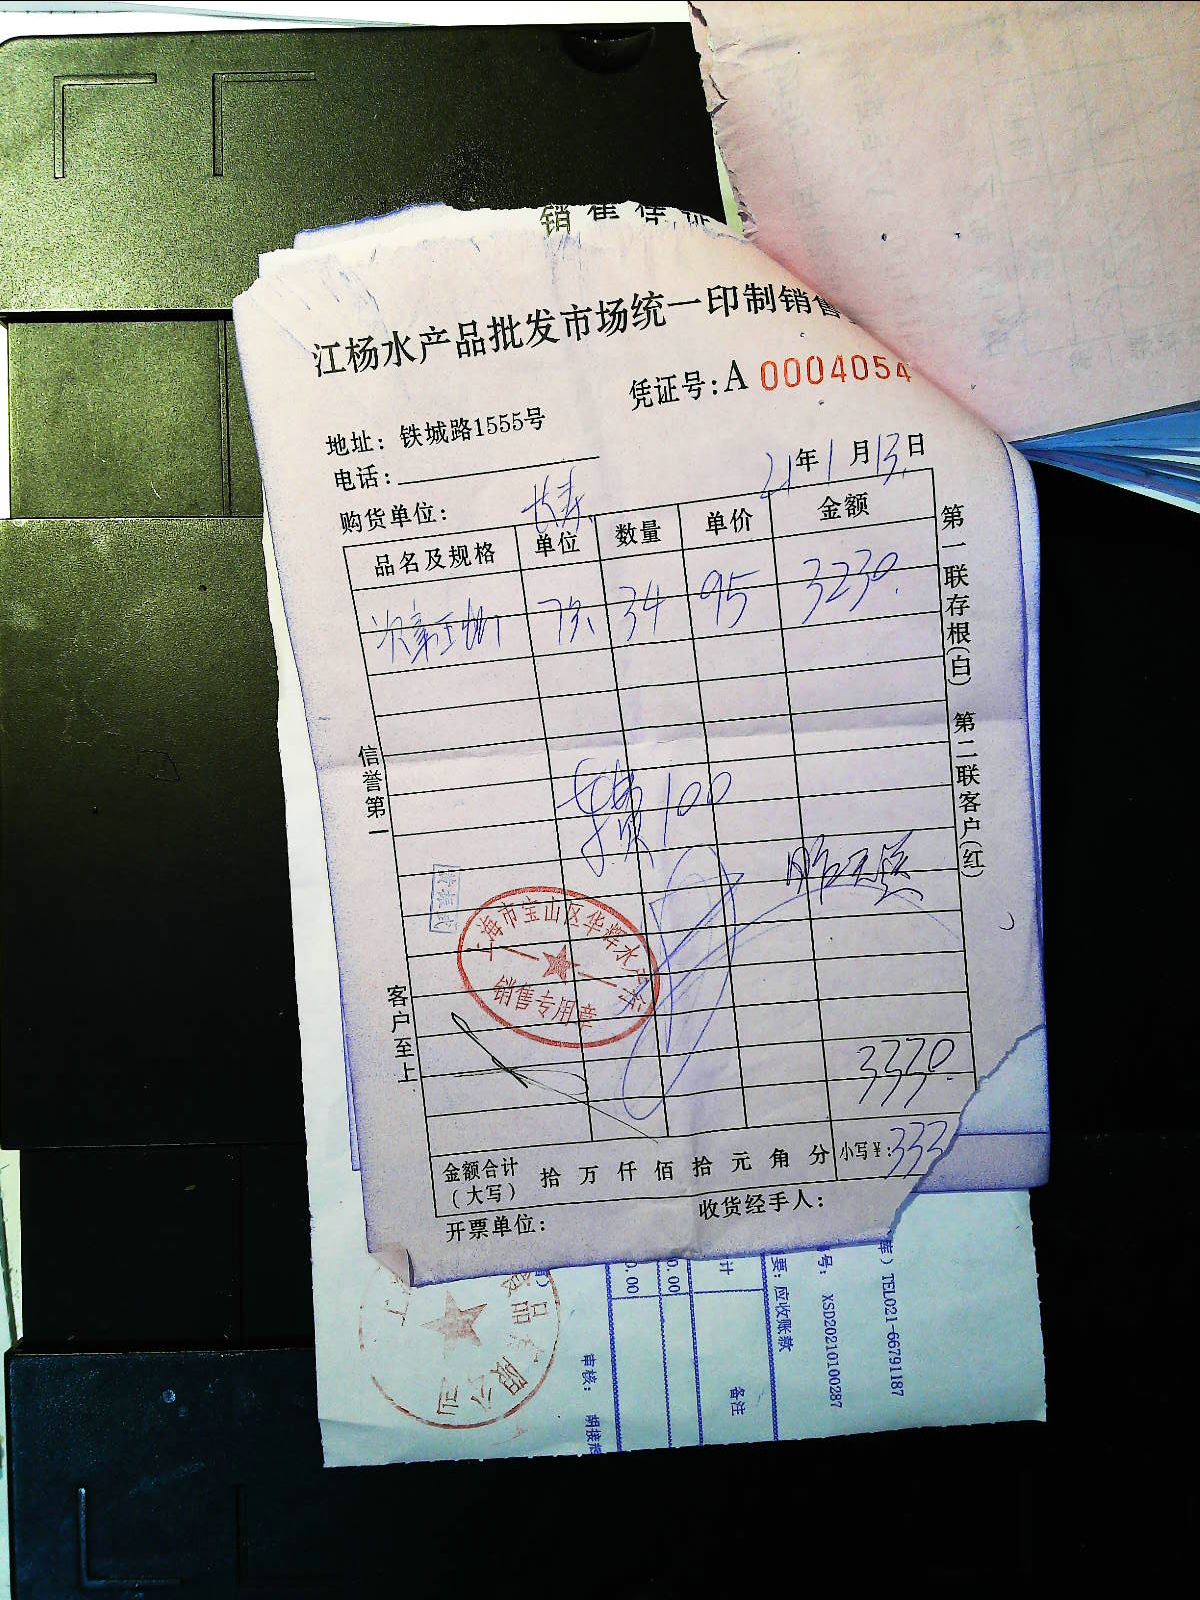 江杨水产品批发市场统一印制销售
凭证号:A 0004054
地址: 铁城路1555号
电话:
21年1月13日
购货单位: 长寿
品名及规格 单位 数量 单价 金额
34 95 3230.
车费100
3330.
金额合计(大写) 拾 万 仟 佰 拾 元 角 分 小写¥:333
开票单位: 收货经手人:
信誉第一
客户至上
第一联存根(白) 第二联客户(红)
上海市宝山区华辉水产
销售专用章
TEL021-66791187
号: XSD20210100287
要: 应收账款
计
备注
0.00
0.00
审核: 胡接
品有限公司